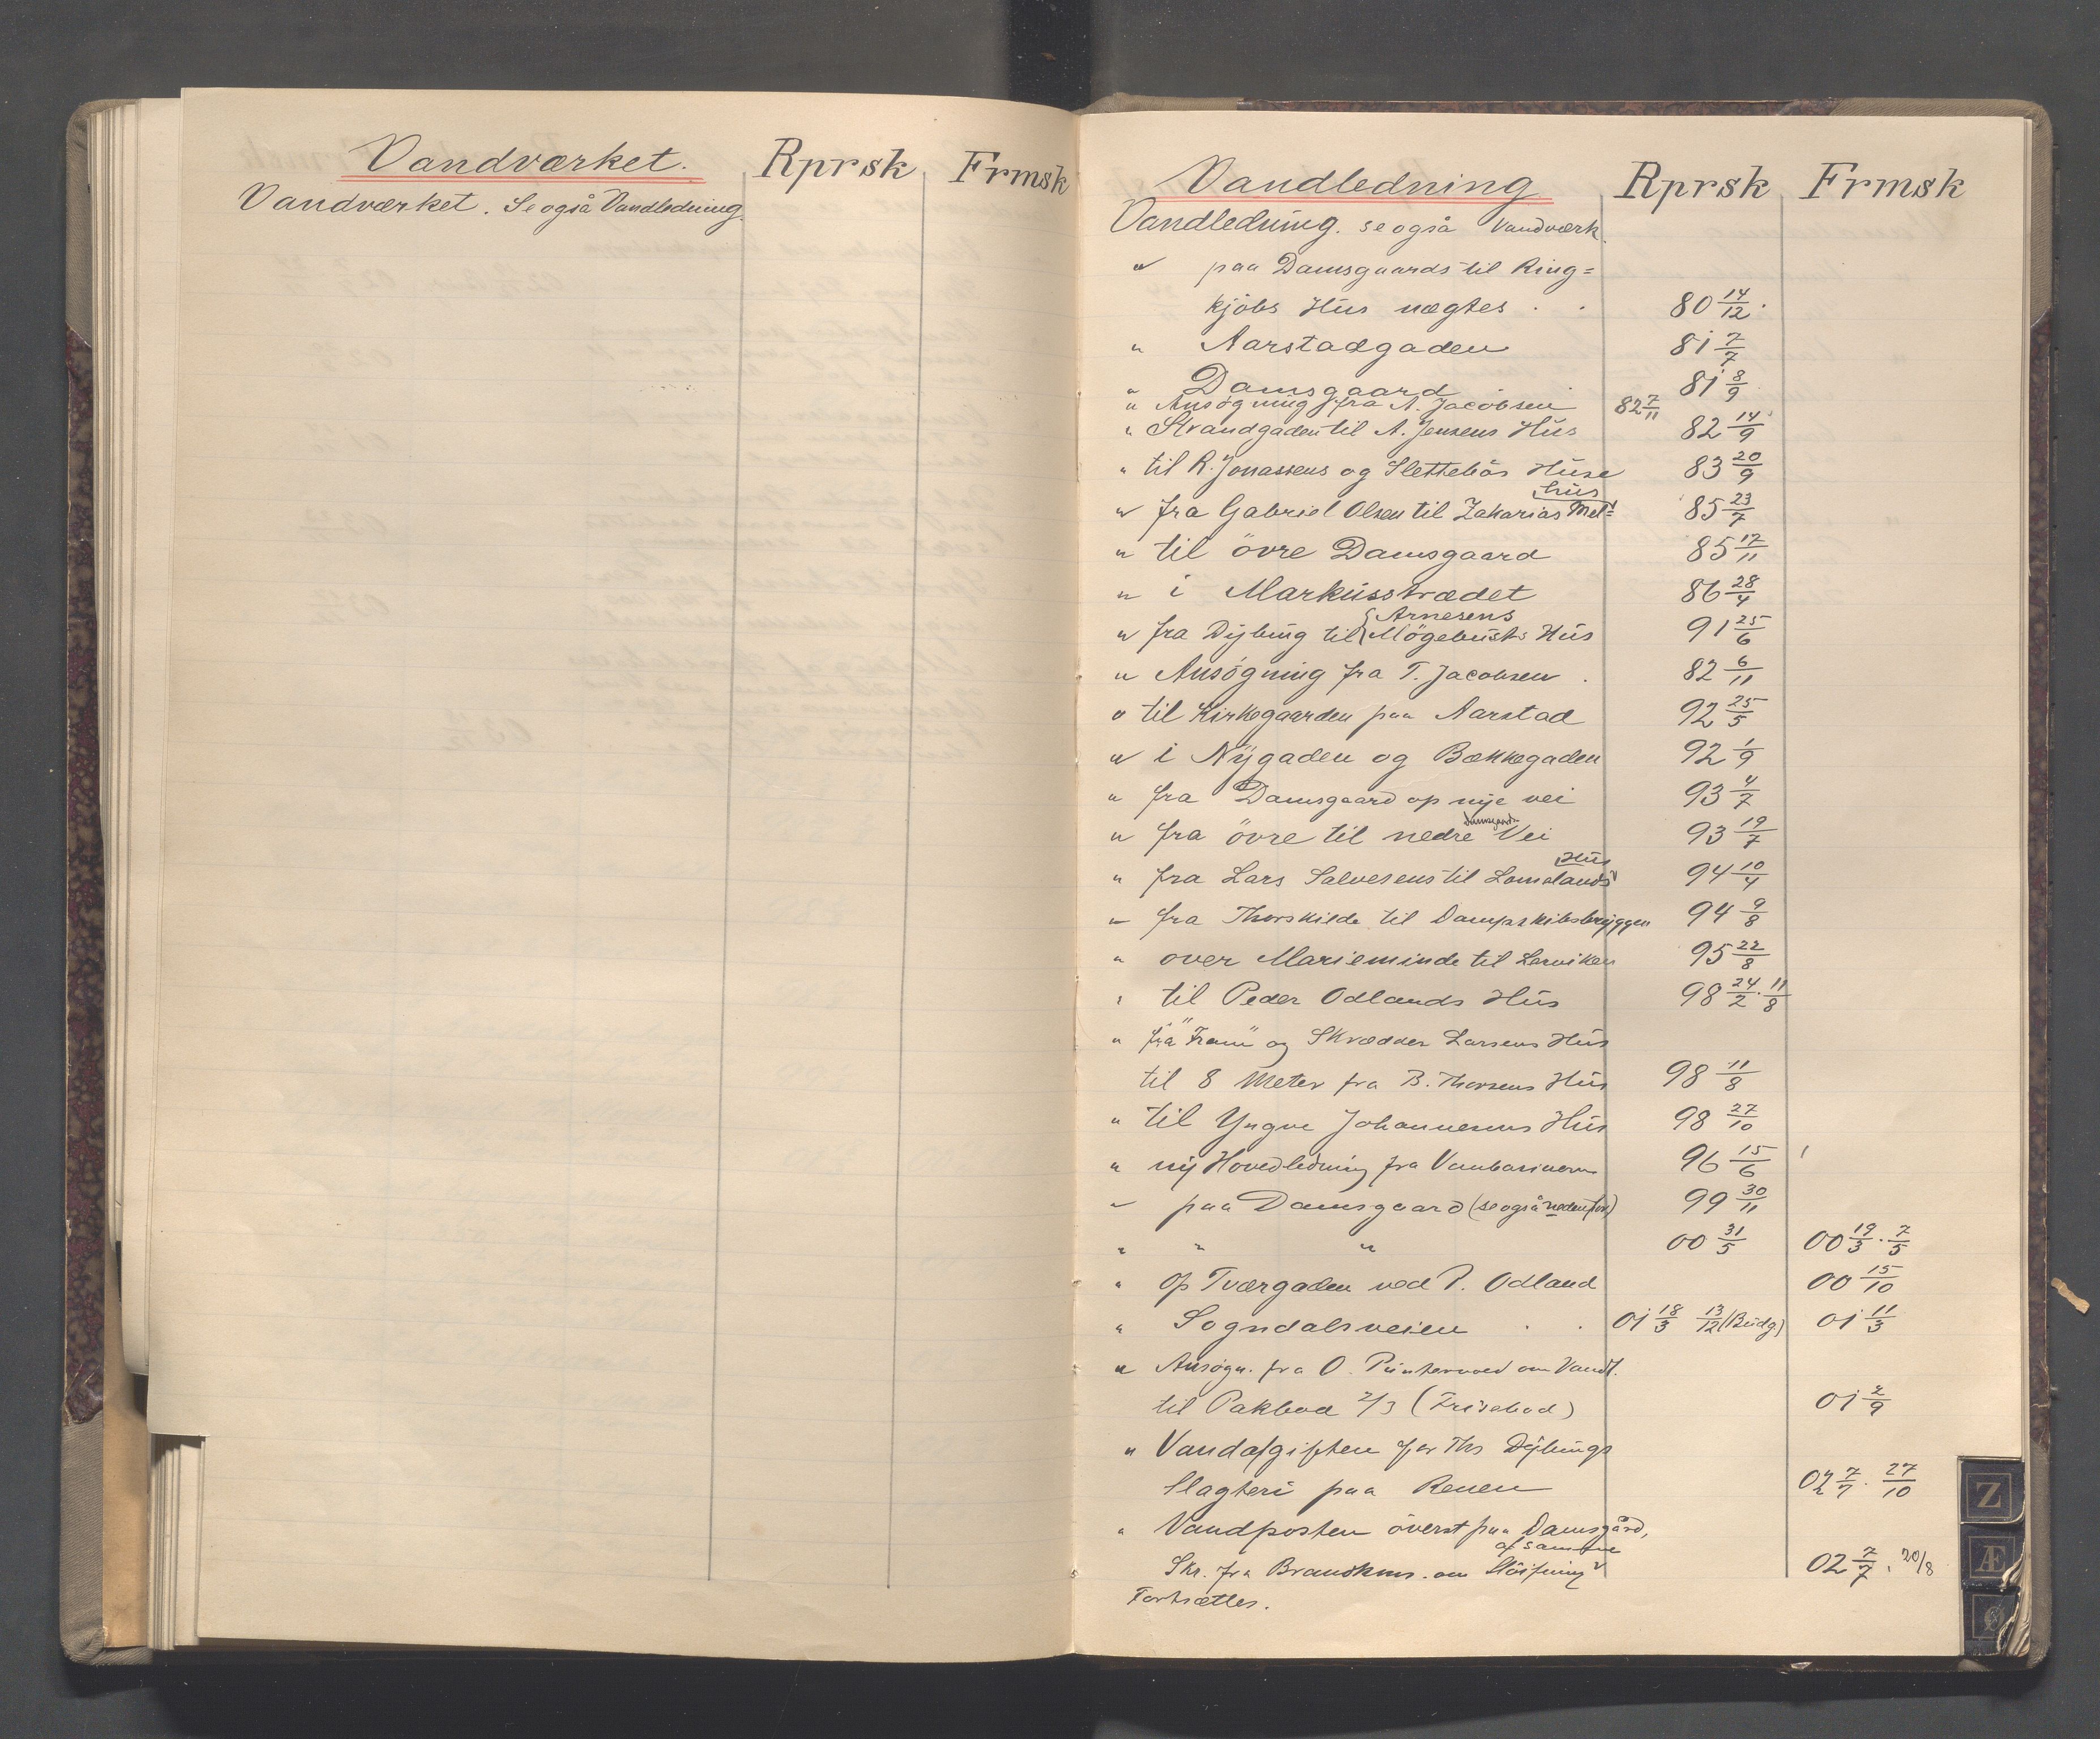 Vandværket. Rprsk Frmsk
Vandværket. Se også Vandledning.
Vandledning Rprsk Frmsk
Vandledning. se også Vandværk.
" paa Damsgaards til Ring=
kjøbs Hus nægtes . . 80 14/12.
" Aarstadgaden 81 7/7
" Damsgaard . . 81 8/9
" Ansøgning fra A. Jacobsen 82 7/11
" Strandgaden til A. Jensens Hus 82 14/9
" til R. Jonassens og Slettebös Huse 83 20/9
" fra Gabriel Olsen til Zakarias Mel= hus 85 23/7
" til övre Damsgaard 85 17/11
" i Markusstrædet 86 28/4
" fra Dybing til { Arnesens Mögebusts Hus 91 25/6
" Ansögning fra T. Jacobsen . 82 6/11
" til Kirkegaarden paa Aarstad 92 25/5
" i Nygaden og Bækkegaden 92 1/9
" fra Damsgaard op nye vei 93 4/7
" fra övre til nedre Damsgards Vei 93 19/7
" fra Lars Salvesens til Lomelands Hus 94 10/4
" fra Thorskilde til Dampskibsbryggen 94 9/8
" over Marieminde til Lerviken 95 22/8
" til Peder Odlands Hus 98 24/2 . 11/8
" fra "Fram" og Skrædder Larsens Hus
til 8 Meter fra B. Thorsens Hus 98 11/8
" til Yngve Johannesens Hus 98 27/10
" ny Hovedledning fra 96 15/6
" paa Damsgaard (se også nedenfor) 99 30/11
" " " 00 31/5 00 19/3 . 7/5
" op Tværgaden ved P. Odland 00 15/10
" Sogndalsveien . . 01 18/3 13/12 (Budg.) 01 11/3
" Ansøgn. fra O. Puntervold om Vandl.
til Pakbod 2/3 (Frisebod) 01 2/9
" Vandafgiften for Ths Dybings
Slagteri paa Renen 02 7/7 . 27/10
" Vandposten överst paa Damsgård,
Skr. fra Brandkms. om Slöifning af samme 02 7/7 . 20/8
Fortsættes.
Z
Æ
Ø